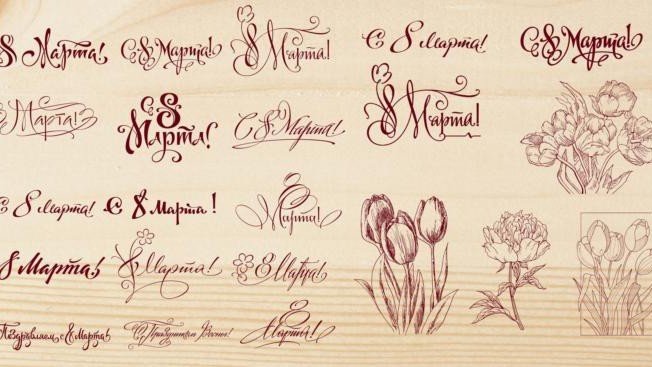 8 Марта!
С 8 Марта!
С 8 Марта!
С 8 Марта!
С 8 Марта!
Марта!
С 8 Марта!
С 8 Марта!
С 8 Марта!
С 8 Марта!
С 8 Марта!
8 Марта!
8 Марта!
8 Марта!
С 8 Марта!
Поздравляем с 8 Марта!
С Праздником Весны!
8 Марта!